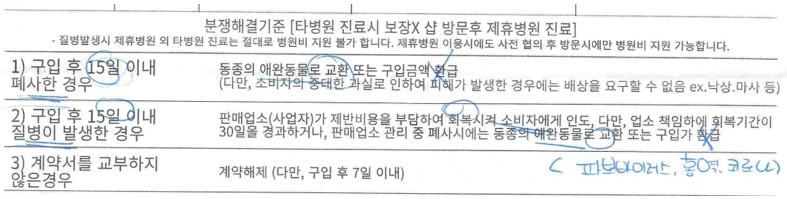 분쟁해결기준 [타병원 진료시 보장X 샵 방문후 제휴병원 진료]
- 질병발생시 제휴병원 외 타병원 진료는 절대로 병원비 지원 불가 합니다. 제휴병원 이용시에도 사전 협의 후 방문시에만 병원비 지원 가능합니다.
1) 구입 후 15일 이내
폐사한 경우
동종의 애완동물로 교환 또는 구입금액 환급
(다만, 소비자의 중대한 과실로 인하여 피해가 발생한 경우에는 배상을 요구할 수 없음 ex.낙상.마사 등)
2) 구입 후 15일 이내
질병이 발생한 경우
판매업소(사업자)가 제반비용을 부담하여 회복시켜 소비자에게 인도, 다만, 업소 책임하에 회복기간이
30일을 경과하거나, 판매업소 관리 중 폐사시에는 동종의 애완동물로 교환 또는 구입가 환급
3) 계약서를 교부하지
않은경우
계약해제 (다만, 구입 후 7일 이내)
( 파보바이러스, 홍역, 코로나)